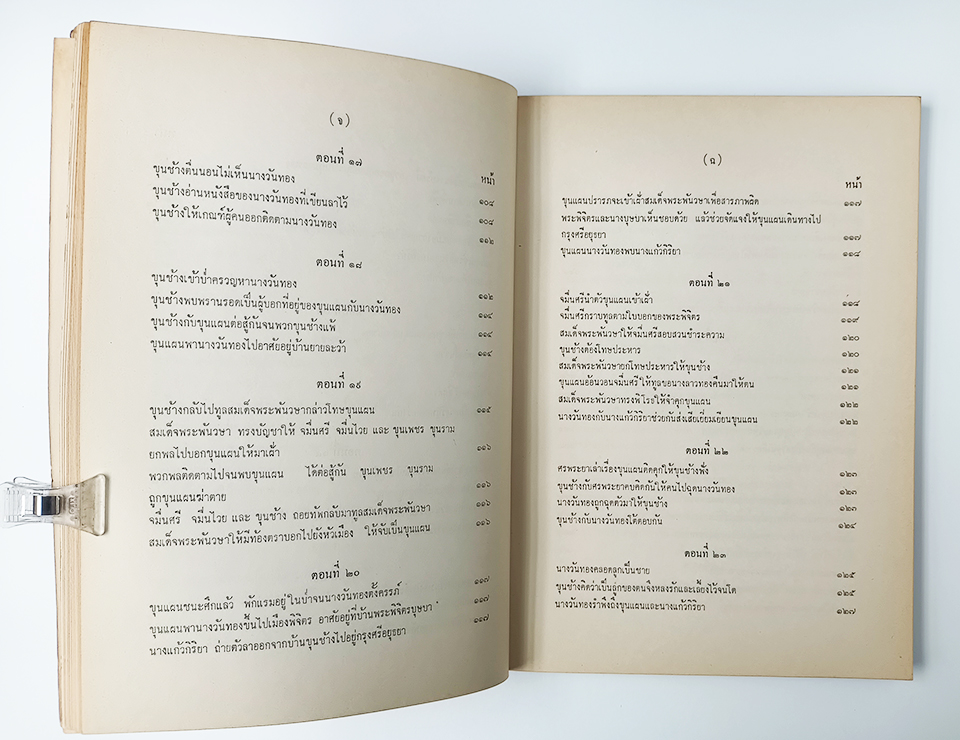 (จ)
ตอนที่ ๑๗
หน้า
ขุนช้างตื่นนอนไม่เห็นนางวันทอง ๑๐๘
ขุนช้างอ่านหนังสือของนางวันทองที่เขียนลาไว้ ๑๐๘
ขุนช้างให้เกณฑ์ผู้คนออกติดตามนางวันทอง ๑๑๒
ตอนที่ ๑๘
ขุนช้างเข้าป่าครวญหานางวันทอง ๑๑๒
ขุนช้างพบพรานรอดเป็นผู้บอกที่อยู่ของขุนแผนกับนางวันทอง ๑๑๔
ขุนช้างกับขุนแผนต่อสู้กันจนพวกขุนช้างแพ้ ๑๑๔
ขุนแผนพานางวันทองไปอาศัยอยู่บ้านยายละว้า ๑๑๔
ตอนที่ ๑๙
ขุนช้างกลับไปทูลสมเด็จพระพันวษากล่าวโทษขุนแผน ๑๑๕
สมเด็จพระพันวษา ทรงบัญชาให้ จมื่นศรี จมื่นไวย และ ขุนเพชร ขุนราม
ยกพลไปบอกขุนแผนให้มาเฝ้า ๑๑๖
พวกพลติดตามไปจนพบขุนแผน ได้ต่อสู้กัน ขุนเพชร ขุนราม
ถูกขุนแผนฆ่าตาย ๑๑๖
จมื่นศรี จมื่นไวย และ ขุนช้าง ถอยทัพกลับมาทูลสมเด็จพระพันวษา ๑๑๖
สมเด็จพระพันวษาให้มีท้องตราบอกไปยังหัวเมือง ให้จับเป็นขุนแผน ๑๑๖
ตอนที่ ๒๐
ขุนแผนชนะศึกแล้ว พักแรมอยู่ในป่าจนนางวันทองตั้งครรภ์ ๑๑๗
ขุนแผนพานางวันทองขึ้นไปเมืองพิจิตร อาศัยอยู่ที่บ้านพระพิจิตรบุษบา ๑๑๗
นางแก้วกิริยา ถ่ายตัวลาออกจากบ้านขุนช้างไปอยู่กรุงศรีอยุธยา ๑๑๗
(ฉ)
หน้า
ขุนแผนปรารภจะเข้าเฝ้าสมเด็จพระพันวษาเพื่อสารภาพผิด ๑๑๗
พระพิจิตรและนางบุษบาเห็นชอบด้วย แล้วช่วยจัดแจงให้ขุนแผนเดินทางไป
กรุงศรีอยุธยา ๑๑๗
ขุนแผนนางวันทองพบนางแก้วกิริยา ๑๑๘
ตอนที่ ๒๑
จมื่นศรีนำตัวขุนแผนเข้าเฝ้า ๑๑๘
จมื่นศรีกราบทูลตามใบบอกของพระพิจิตร ๑๑๙
สมเด็จพระพันวษาให้จมื่นศรีสอบสวนชำระความ ๑๒๐
ขุนช้างต้องโทษประหาร ๑๒๐
สมเด็จพระพันวษายกโทษประหารให้ขุนช้าง ๑๒๑
ขุนแผนอ้อนวอนจมื่นศรีให้ทูลขอนางลาวทองคืนมาให้ตน ๑๒๑
สมเด็จพระพันวษาทรงพิโรธให้จำคุกขุนแผน ๑๒๒
นางวันทองกับนางแก้วกิริยาช่วยกันส่งเสียเยี่ยมเยียนขุนแผน ๑๒๒
ตอนที่ ๒๒
ศรพระยาเล่าเรื่องขุนแผนติดคุกให้ขุนช้างฟัง ๑๒๓
ขุนช้างกับศรพระยาคบคิดกันให้คนไปฉุดนางวันทอง ๑๒๓
นางวันทองถูกฉุดตัวมาให้ขุนช้าง ๑๒๓
ขุนช้างกับนางวันทองโต้ตอบกัน ๑๒๔
ตอนที่ ๒๓
นางวันทองคลอดลูกเป็นชาย ๑๒๕
ขุนช้างคิดว่าเป็นลูกของตนจึงหลงรักและเลี้ยงไว้จนโต ๑๒๕
นางวันทองรำพึงถึงขุนแผนและนางแก้วกิริยา ๑๒๗